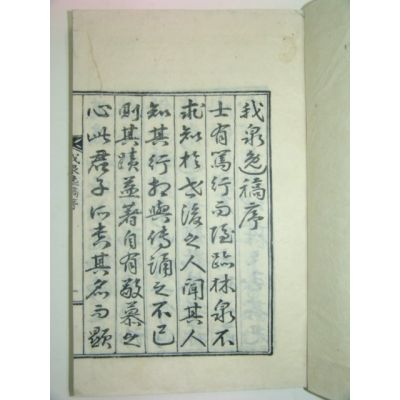 我泉逸稿序
士有篤行而隱臨林泉不
求知於世後之人聞其人
知其行相與傳誦之不已
則其蹟益著自有敬慕之
心此君子所貴其名而顯
我泉逸稿序